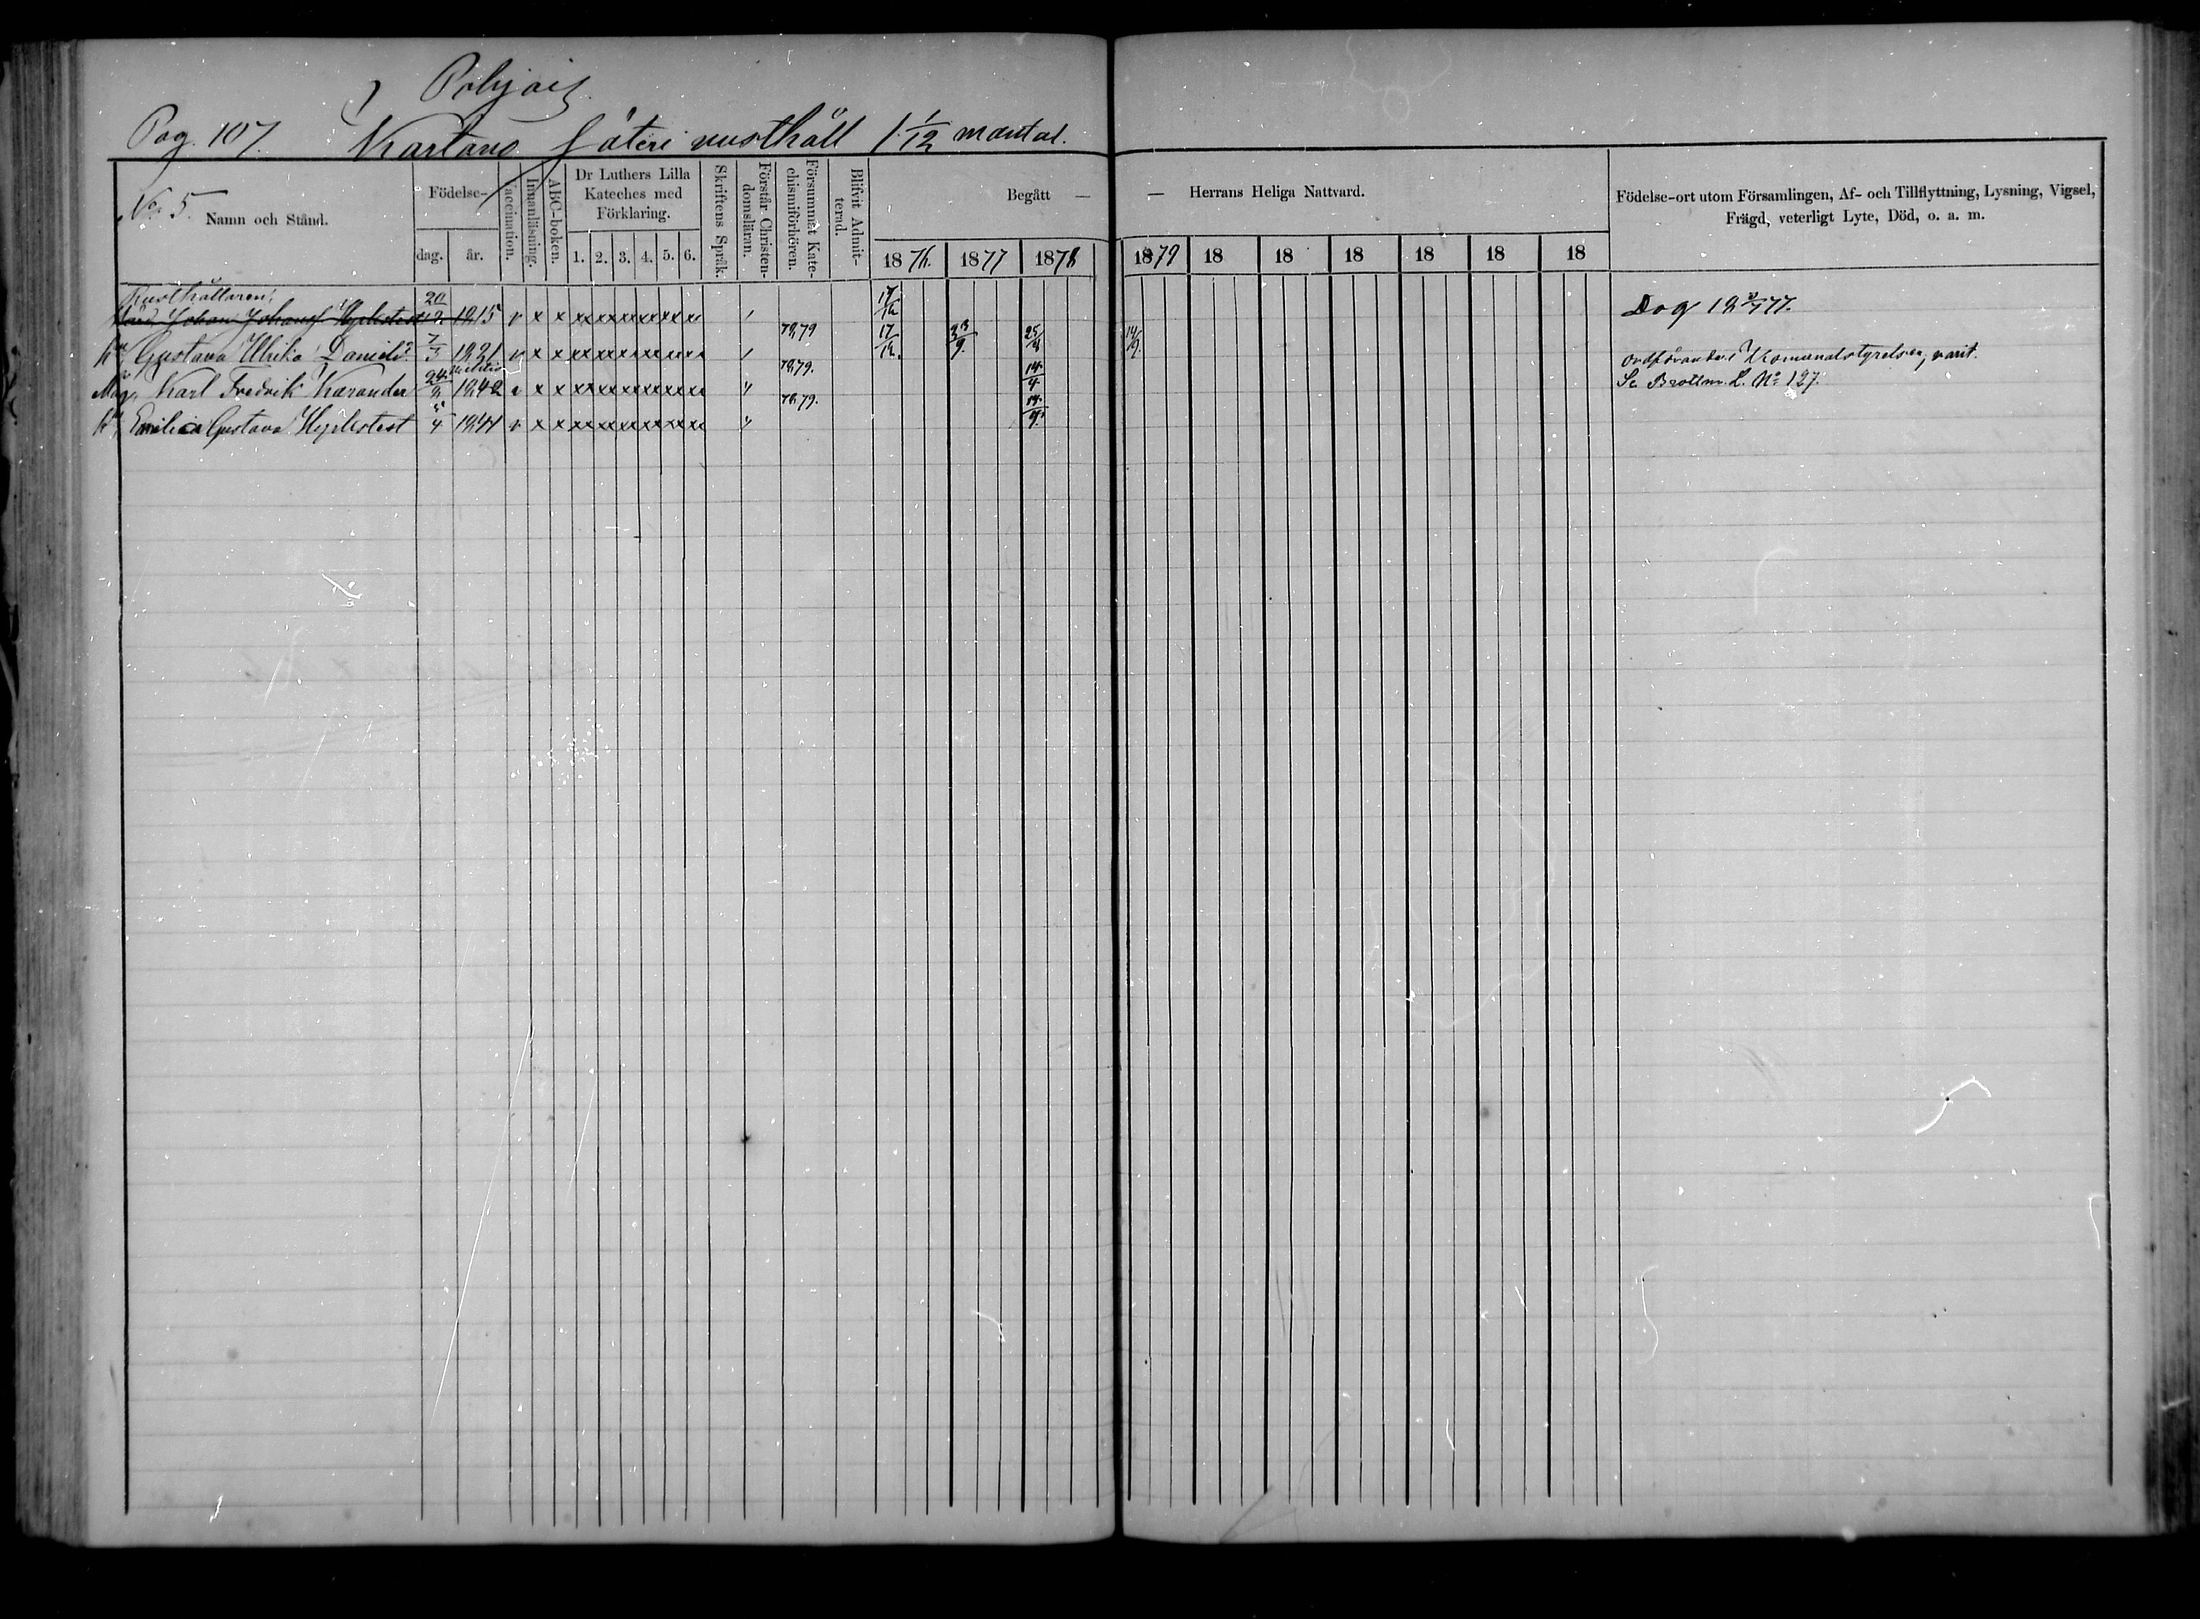 Pohjois
Pag. 107. Kartano Säteri rusthåll 1 1/12 mantal.
No 5.
Namn och Stånd.
Födelse-
dag. år.
Vaccination.
Innanläsning.
ABC-boken.
Dr Luthers Lilla Kateches med Förklaring.
1. 2. 3. 4. 5. 6.
Skriftens Språk.
Förstår Christendomsläran.
Försummat Katechismiförhören.
Blifvit Admitterad.
Begått — — Herrans Heliga Nattvard.
1876. 1877 1878 1879 18 18 18 18 18 18
Födelse-ort utom Församlingen, Af- och Tillflyttning, Lysning, Vigsel,
Frägd, veterligt Lyte, Död, o. a. m.
Rusthållaren
Johan Johansf Hyrkstedt 20/12 1815 v x x xx xx xx xx xx xx 17/12 Dog 18 77.
Hu Gustava Ulrika Danielsd. 7/3 1821 v x x xx xx xx xx xx xx 78,79 17/12. 23/9. 25/8 14/9.
Måg. Karl Fredrik Karander 24/2 1842 v x x xx xx xx xx xx xx 78,79. 14/4 ordförande i Komunalstyrelsen, varit.
Se Brottm. L. No 127.
Hu Emilia Gustava Hyrkstedt 5/4 1841 v x x xx xx xx xx xx xx 78,79. 14/9.